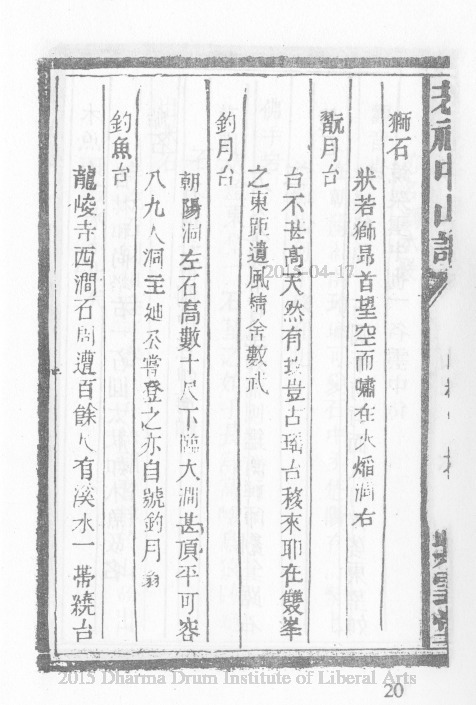 獅石
狀若獅昂首望空而嘯在大焰澗右
翫月台
台不甚高天然有趣豈古瑤台移來耶在雙峯
之東距遺風精舍數武
釣月台
朝陽洞左石高數十尺下臨大澗甚頂平可容
八九人洞主逊公嘗登之亦自號釣月翁
釣魚台
龍崚寺西澗石周遭百餘尺有溪水一帶繞台
2015-04-17
2015 Dharma Drum Institute of Liberal Arts
20